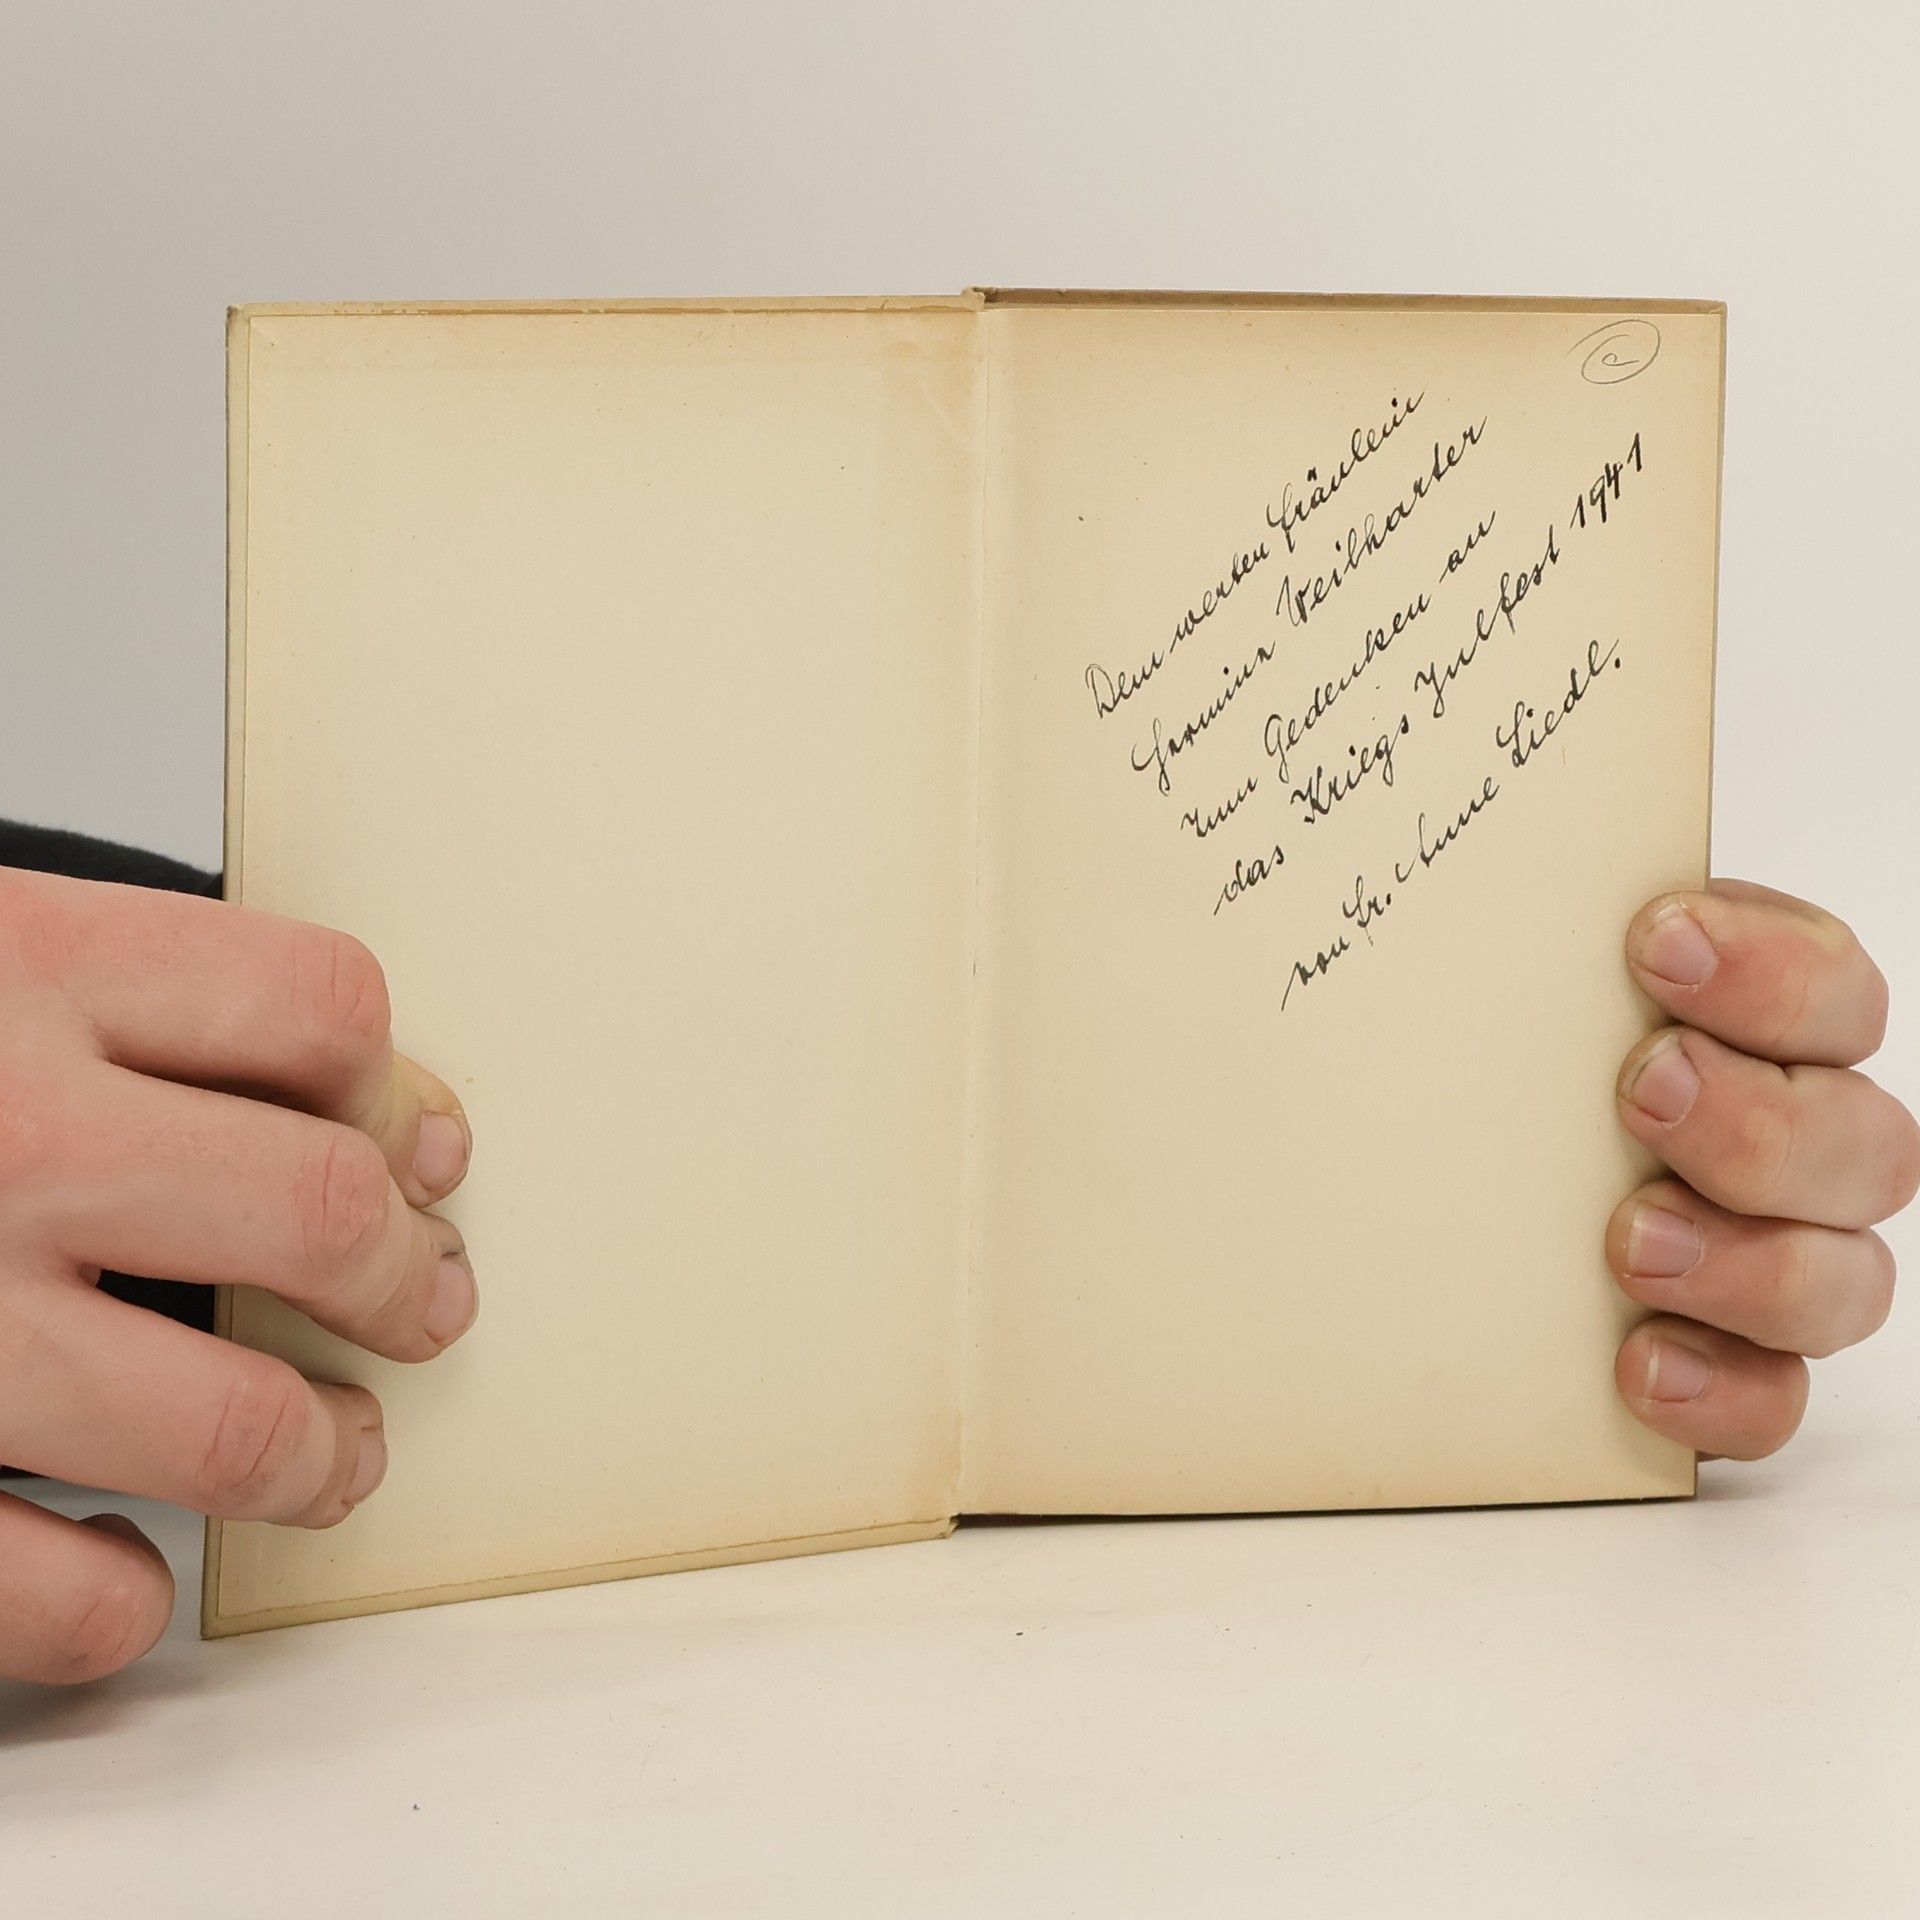 Dem werten Fräulein
Hermine Veilharter
zum Gedenken an
das Kriegs Julfest 1941
von Fr. Anne Liedl.